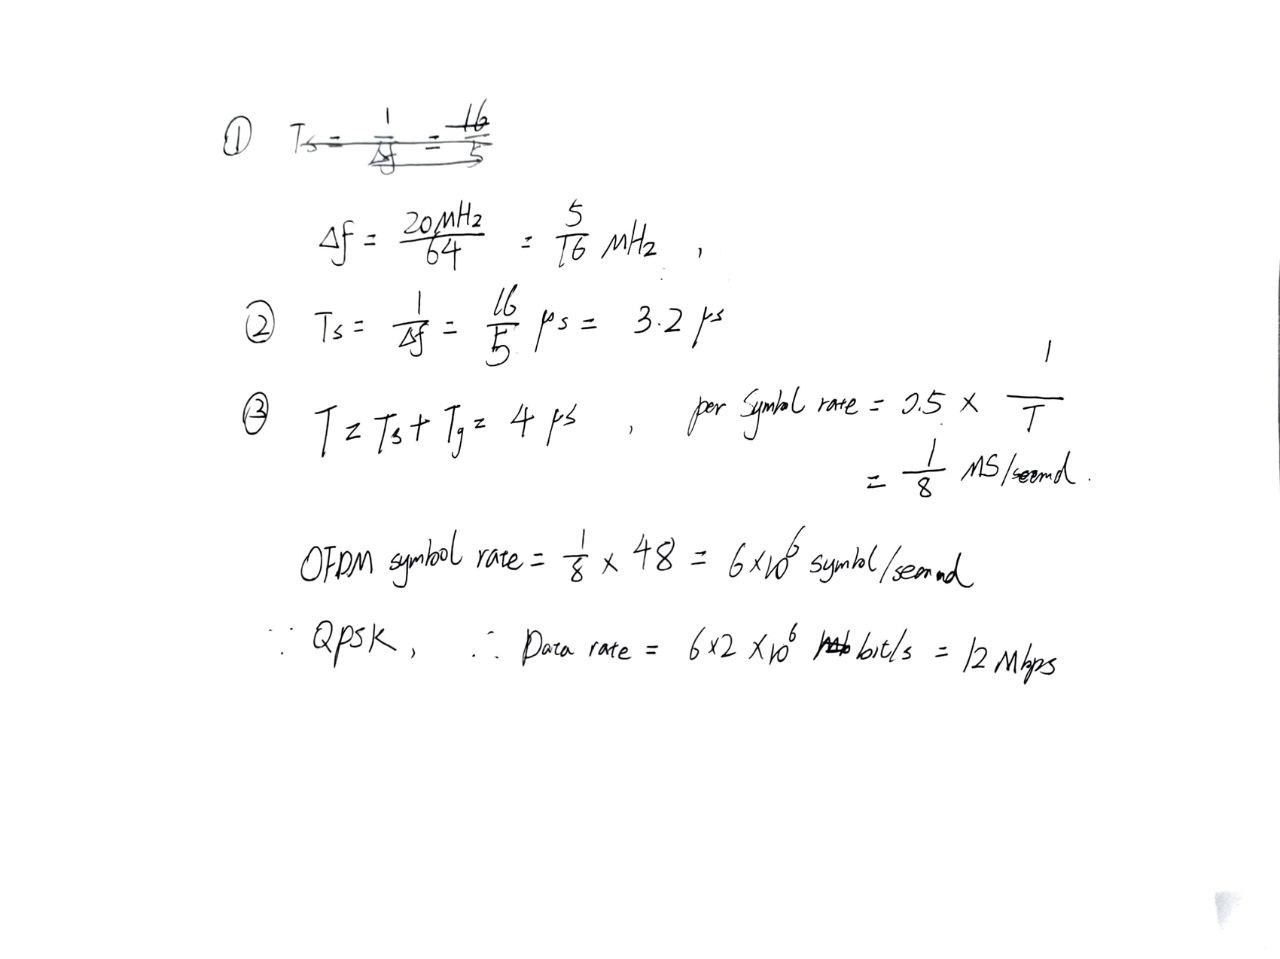 ① Ts = 1/Δf = 16/5
Δf = 20MHz/64 = 5/16 MHz ,
② Ts = 1/Δf = 16/5 μs = 3.2 μs
③ T = Ts + Tg = 4 μs , per symbol rate = 0.5 × 1/T
= 1/8 MS/second .
OFDM symbol rate = 1/8 × 48 = 6×10⁶ symbol/second
∵ QPSK, ∴ Data rate = 6×2 ×10⁶ bit/s = 12 Mbps